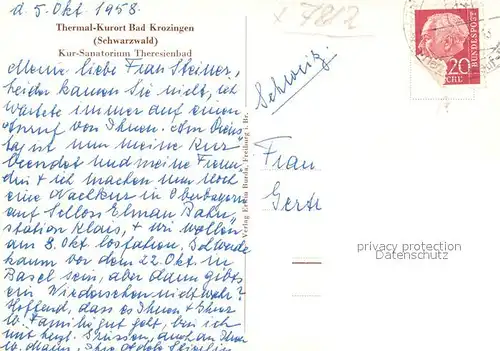 d. 5. Okt. 1958.
Thermal-Kurort Bad Krozingen
(Schwarzwald)
Kur-Sanatorium Theresienbad
Meine liebe Frau Steiner,
leider kamen Sie nicht, ich
wartete immer auf einen
Anruf von Ihnen. Am Diens
tag ist nun meine Kur
beendet und meine Freun
din & ich machen nun noch
eine Nachkur in Oberbayern
auf Schloss Elmau Bahn
station Klais, & wir wollen
am 8. Okt. losfahren. Ich werde
kaum vor dem 22. Okt. in
Basel sein, aber dann gibts
ein Wiedersehen nicht wahr?
Hoffend, dass es Ihnen & Ihrer
w. Familie gut geht, bin ich
mit herzl. Grüssen, auch an Ihren
Verlag Erwin Burda, Freiburg i. Br.
x 7812
Schweiz.
Frau
Gerti
20
DEUTSCHE BUNDESPOST
privacy protection
DELCAMPE